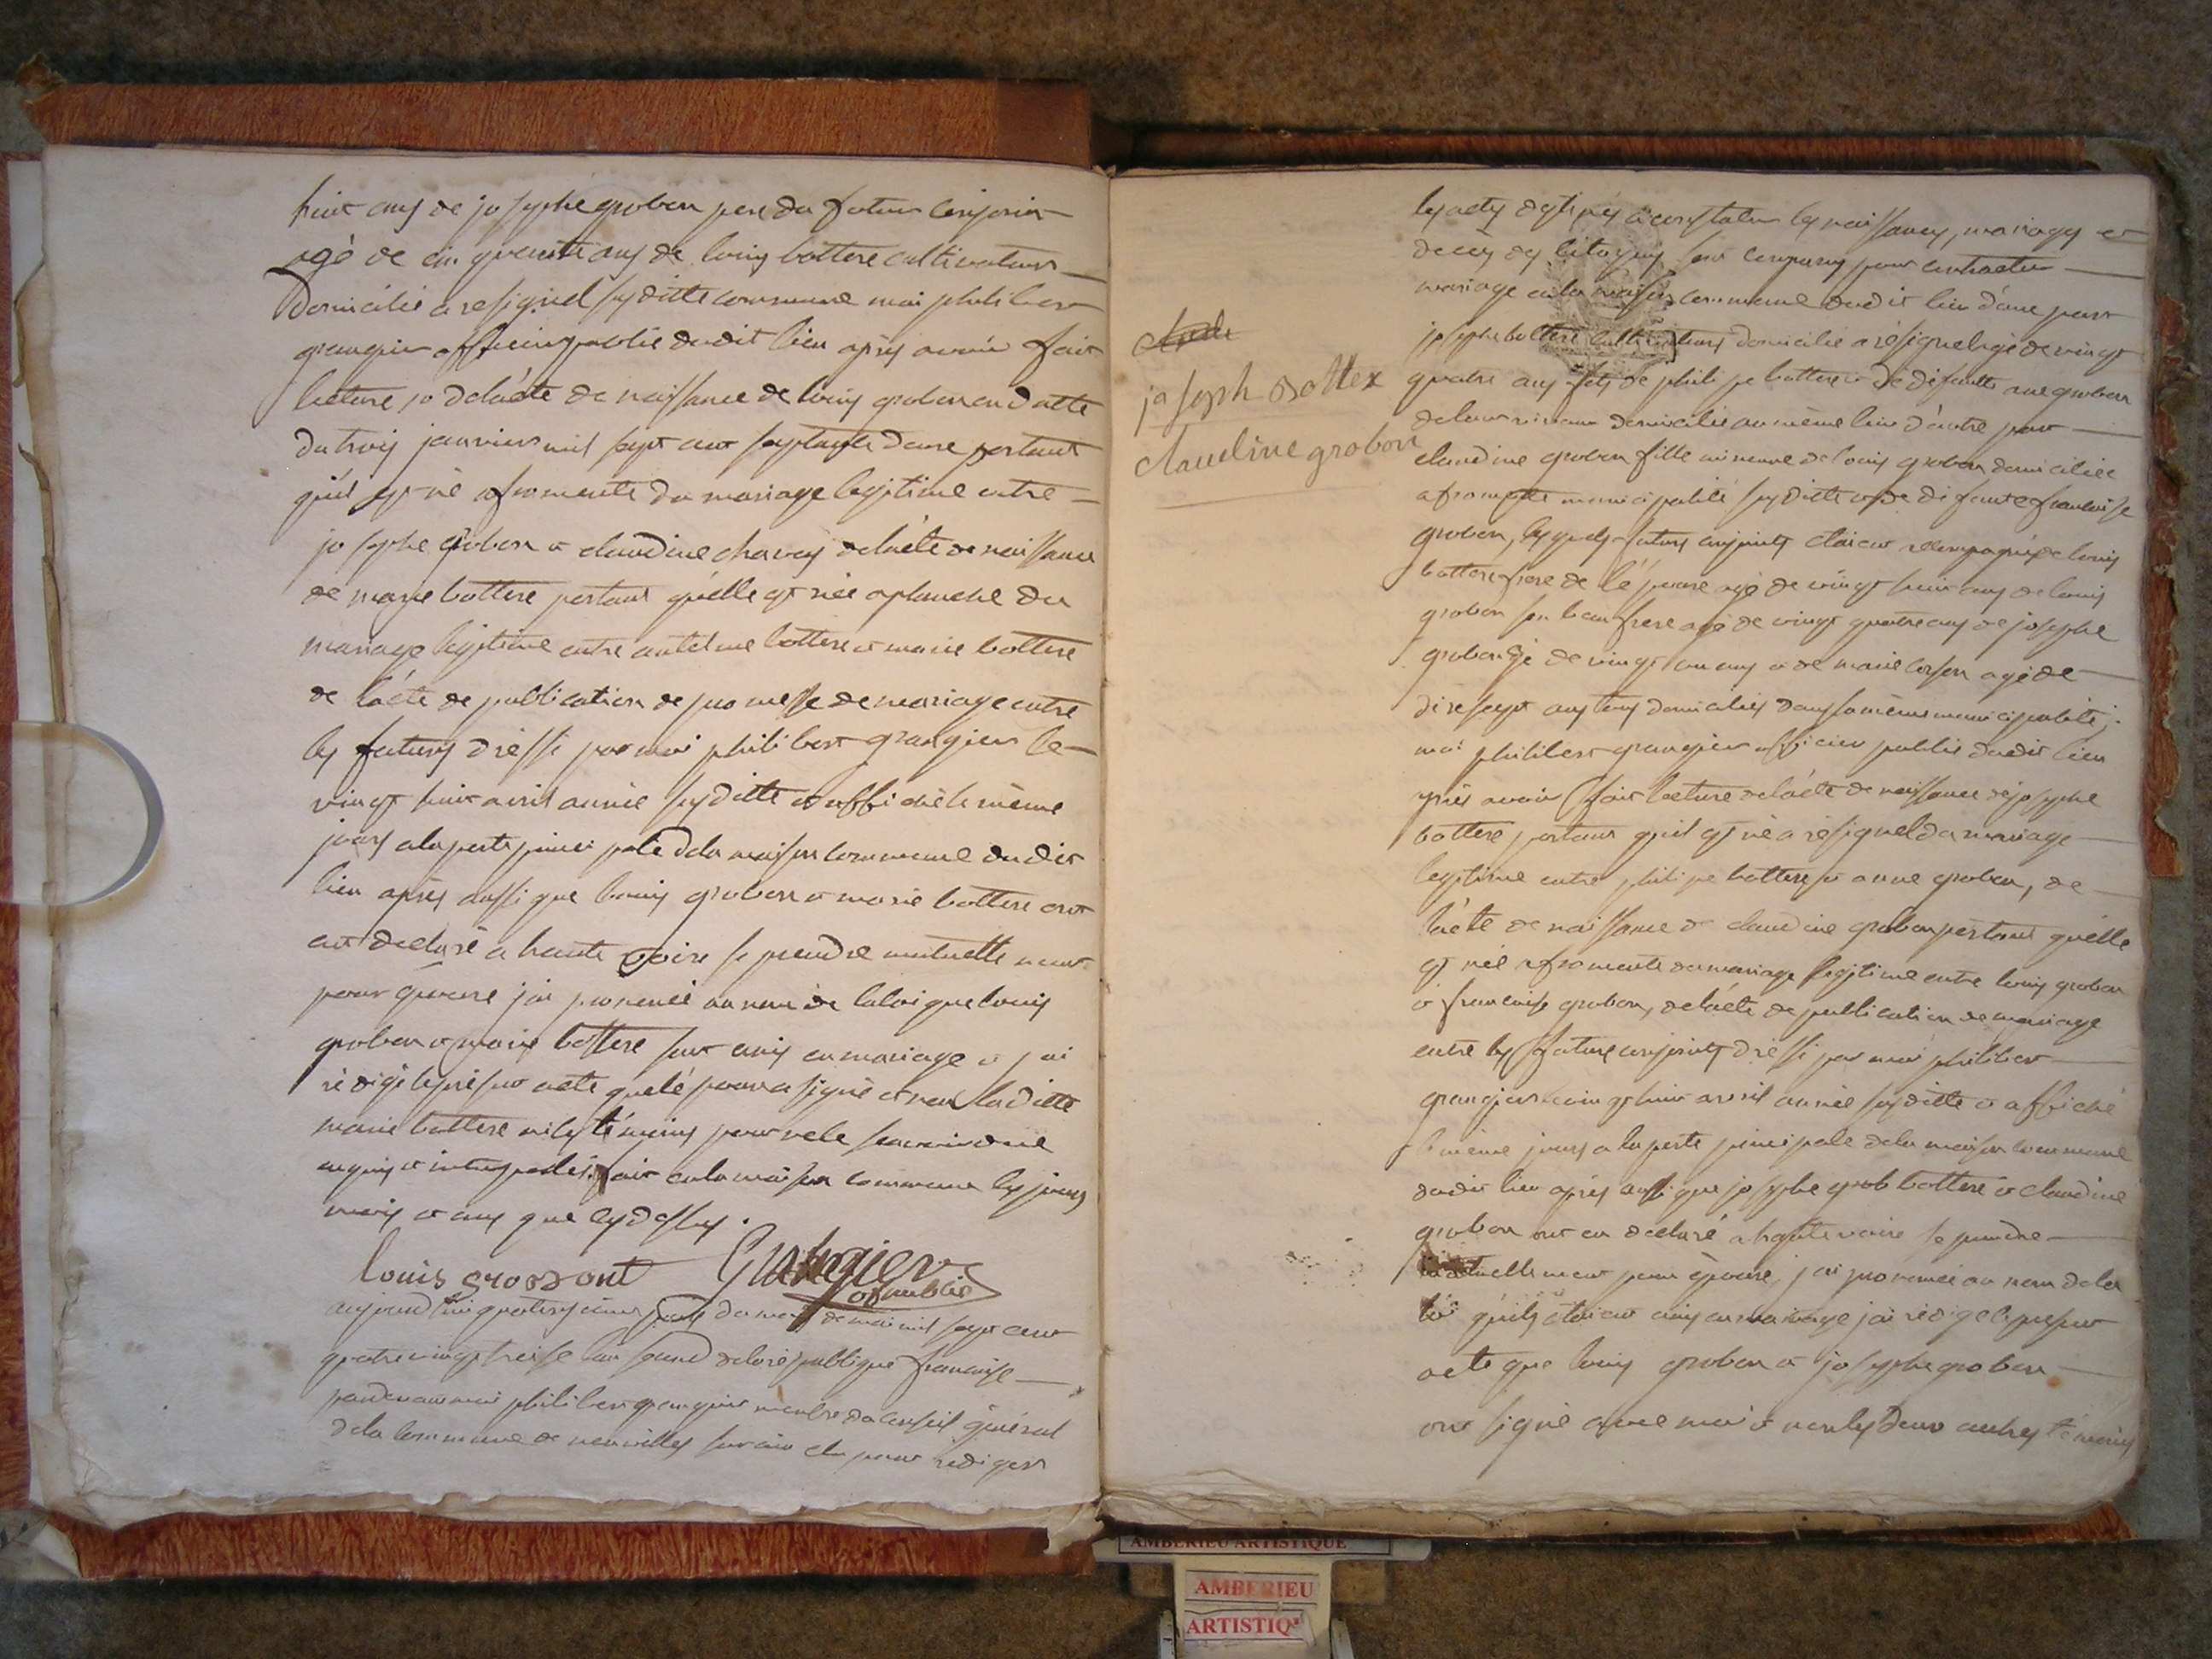 huit ans de josephe grobon pere du futur conjoint
agé de cinquente ans de louis bottere cultivateurs
domicilié a resignel syditte commune moi philibert
grangier officier public dudit lieu après avoir fait
lecture 10 de lácte de naissance de louis grobon en datte
du trois janvier mil sept cent soptante douse portant
quil est né a fromente du mariage legitime entre
josephe grobon et claudine chavey de lácte de naissance
de marie bottere portant quélle est née a planche du
mariage legitime entre antelme bottere et marie bottere
de lácte de publication de promesse de mariage entre
les futurs dréssé par moi philibert grangier le
vingt huit avril année syditte et affiché le même
jours a la porte principale de la maison commune dudit
lieu après aussi que louis grobon et marie bottere ont
eut declaré a haute voire se prendre mutuelle ment
pour épouse jai prononcé au nom de la loi que louis
grobon et marie bottere sont unis en mariage et jai
rédigé le présent acte que lépoux a signé et non laditte
marie bottere ni les témoins pour ne le savoir dene
enquis et interpellés fait en la maison commune les jours
mois et ans que cydessus .
Louis grobont Grangier
of public
aujourdhui quatorsieme jours du mois de mai mil sept cent
quatre vingt treise lan second de la république francaise
pardevant moi philibert grangier membre du conseil général
de la commune de neuvilles sur ain elu pour rediger
les actes destinés a constater les naissances, mariages et
deces des citoyens sont comparus pour contracter
mariage en la maison commune dudit lieu d'une part
josephe bottere cultivateurs domicilié a résignel agé de vingt
quatre ans fils de philipe bottere et de défunte anne grobon
de leur vivant domiciliés au même lieu d'autre part
claudine grobon fille mineure de louis grobon domiciliée
a fromente municipalité syditte et de défunte francoise
grobon, lesquels futurs conjoints étoient accompagnés de louis
bottere frere de lépoux agé de vingt huit ans de louis
grobon son beau frere agé de vingt quatre ans de josephe
grobon agé de vingt un ans et de marie agé de
dixsept ans tous domiciliés dans la même municipalité ;
moi philibert grangier officier public dudit lieu
après avoir fait lecture de lácte de naissance de josephe
bottere, portant quil est né a résignel du mariage
legitime entre philipe bottere et anne grobon, de
lácte de naissance de claudine grobon portant quélle
est née a fromente du mariage legitime entre louis grobon
et francoise grobon, de lácte de publication de mariage
entre les futurs conjoints dréssé par moi philibert
grangier le vingt huit avril année syditte et affiché
le même jours a la porte principale de la maison commune
dudit lieu après aussi que josephe grob bottere et claudine
grobon ont eu declaré a haute voire se prendre
mutuellement pour épouse, jai prononcé au nom de la
loi quils étoient unis en mariage jai rédigé le présent
acte que louis grobon et josephe grobon
ont signé avec moi et non les deux autres témoins
joseph Bottex
claudine grobon
AMBERIEU ARTISTIQUE
AMBERIEU
ARTISTIQ